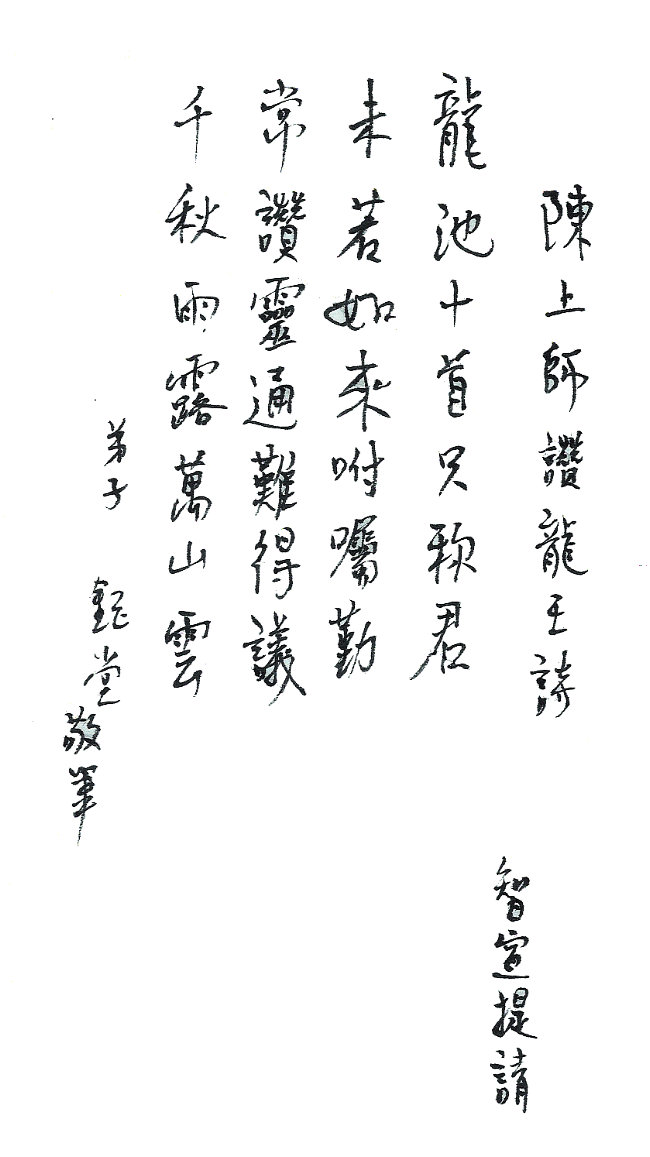 陳上師讚龍王詩
龍池十首只頌君
未若如來咐囑勤
常讚靈通難得議
千秋雨露萬山雲
弟子
鈺堂敬筆
智宣提請